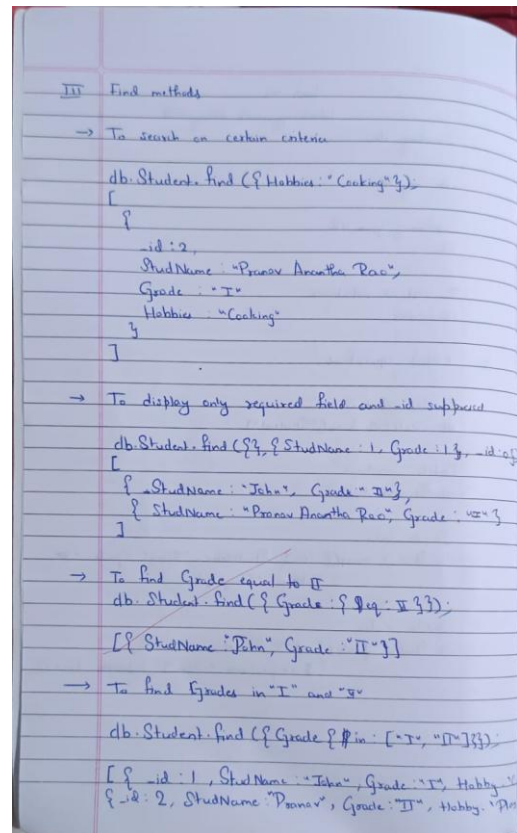 III Find methods
→ To search on certain criteria
db.Student.find({Hobbies: "Cooking"});
[
{
_id: 2,
StudName: "Pranav Anantha Rao",
Grade: "I"
Hobbies "Cooking"
}
]
→ To display only required field and _id suppressed
db.Student.find({}, {StudName: 1, Grade: 1}, _id:0}
[
{ _StudName: "John", Grade "II"},
{ StudName: "Pranav Anantha Rao", Grade: "I"}
]
→ To find Grade equal to II
db.Student.find({Grade: {$eq: II}});
[{ StudName: "John", Grade: "II"}]
→ To find Grades in "I" and "II"
db.Student.find({Grade {$in: ["I", "II"]}});
[{ _id: 1, StudName: "John", Grade: "I", Hobby.
{_id: 2, StudName: "Pranav", Grade: "II", Hobby.